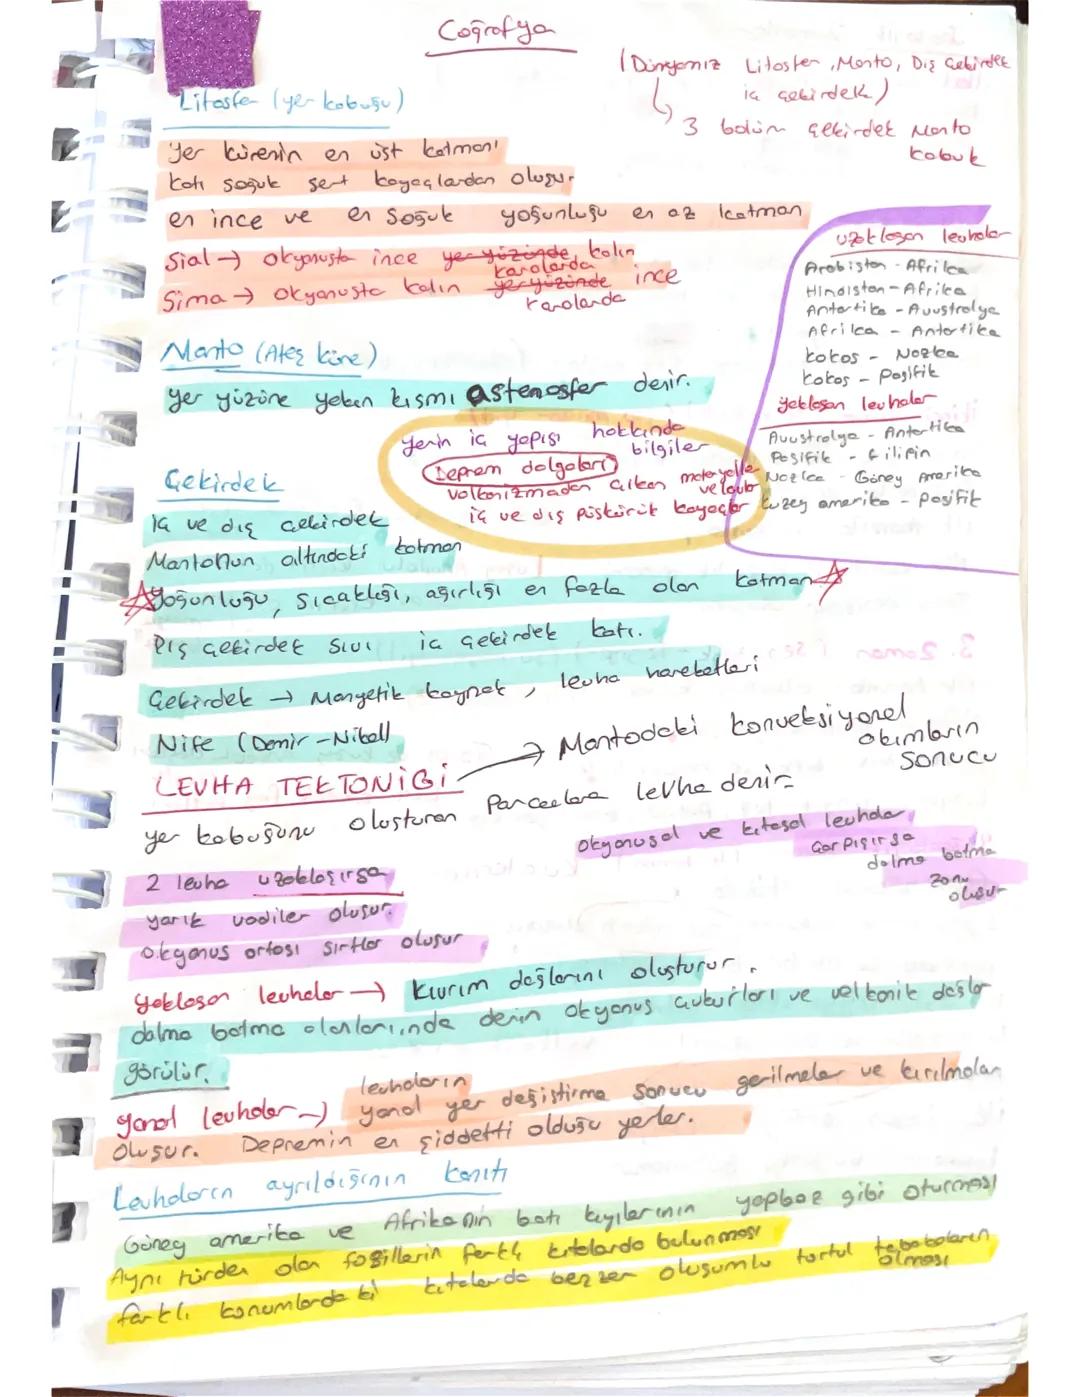 Coğrafya
(Dünyamız Litosfer, Manto, Dış Çekirdek
iç çekirdek)
3 bölüm çekirdek Manto
kabuk
Litosfer (yer kabuğu)
Yer kürenin en üst katmanı
Katı soğuk sert kayaçlardan oluşur
en ince ve en soğuk yoğunluğu en az katman
Sial → Okyanusta ince yer yüzünde kalın
karalarda
Sima → Okyanusta kalın yer yüzünde ince
karalarda
uzaklaşan levhalar
Arabistan - Afrika
Hindistan - Afrika
Antartika - Avustralya
Afrika - Antartika
kokos - Nazka
kokos - Pasifik
yaklaşan levhalar
Avustralya - Antartika
Pasifik - Filipin
Nazka - Güney Amerika
kuzey amerika - pasifik
Manto (Ateş küre)
yer yüzüne yakın kısmı astenosfer denir.
Yerin iç yapısı hakkında
bilgiler
Deprem dalgaları
volkanizmadan çıkan materyaller
ve lavlar
iç ve dış püskürük kayaçlar
Çekirdek
iç ve dış çekirdek
Mantonun altındaki katman
Yoğunluğu, sıcaklığı, ağırlığı en fazla olan katman
Dış çekirdek sıvı iç çekirdek katı.
Çekirdek → Manyetik kaynak, levha hareketleri
Nife (Demir-Nikel)
LEVHA TEKTONİĞİ → Mantodaki konveksiyonel
akımların
sonucu
yer kabuğunu oluşturan parçalara levha denir
Okyanusal ve kıtasal levhalar
çarpışırsa
dalma batma
zonu
oluşur
2 levha uzaklaşırsa
yarık vadiler oluşur.
okyanus ortası sırtlar oluşur
yaklaşan levhalar → kıvrım dağlarını oluşturur.
dalma batma alanlarında derin okyanus çukurları ve volkanik dağlar
görülür.
yanal levhalar → levhaların
yanal yer değiştirme sonucu gerilmeler ve kırılmalar
oluşur. Depremin en şiddetti olduğu yerler.
Levhaların ayrıldığının kanıtı
Güney amerika ve Afrikanın batı kıyılarının yapboz gibi oturması
Aynı türden olan fosillerin farklı kıtalarda bulunması
farklı konumlarda ki kıtalarda benzer oluşumlu tortul tabakaların
olması